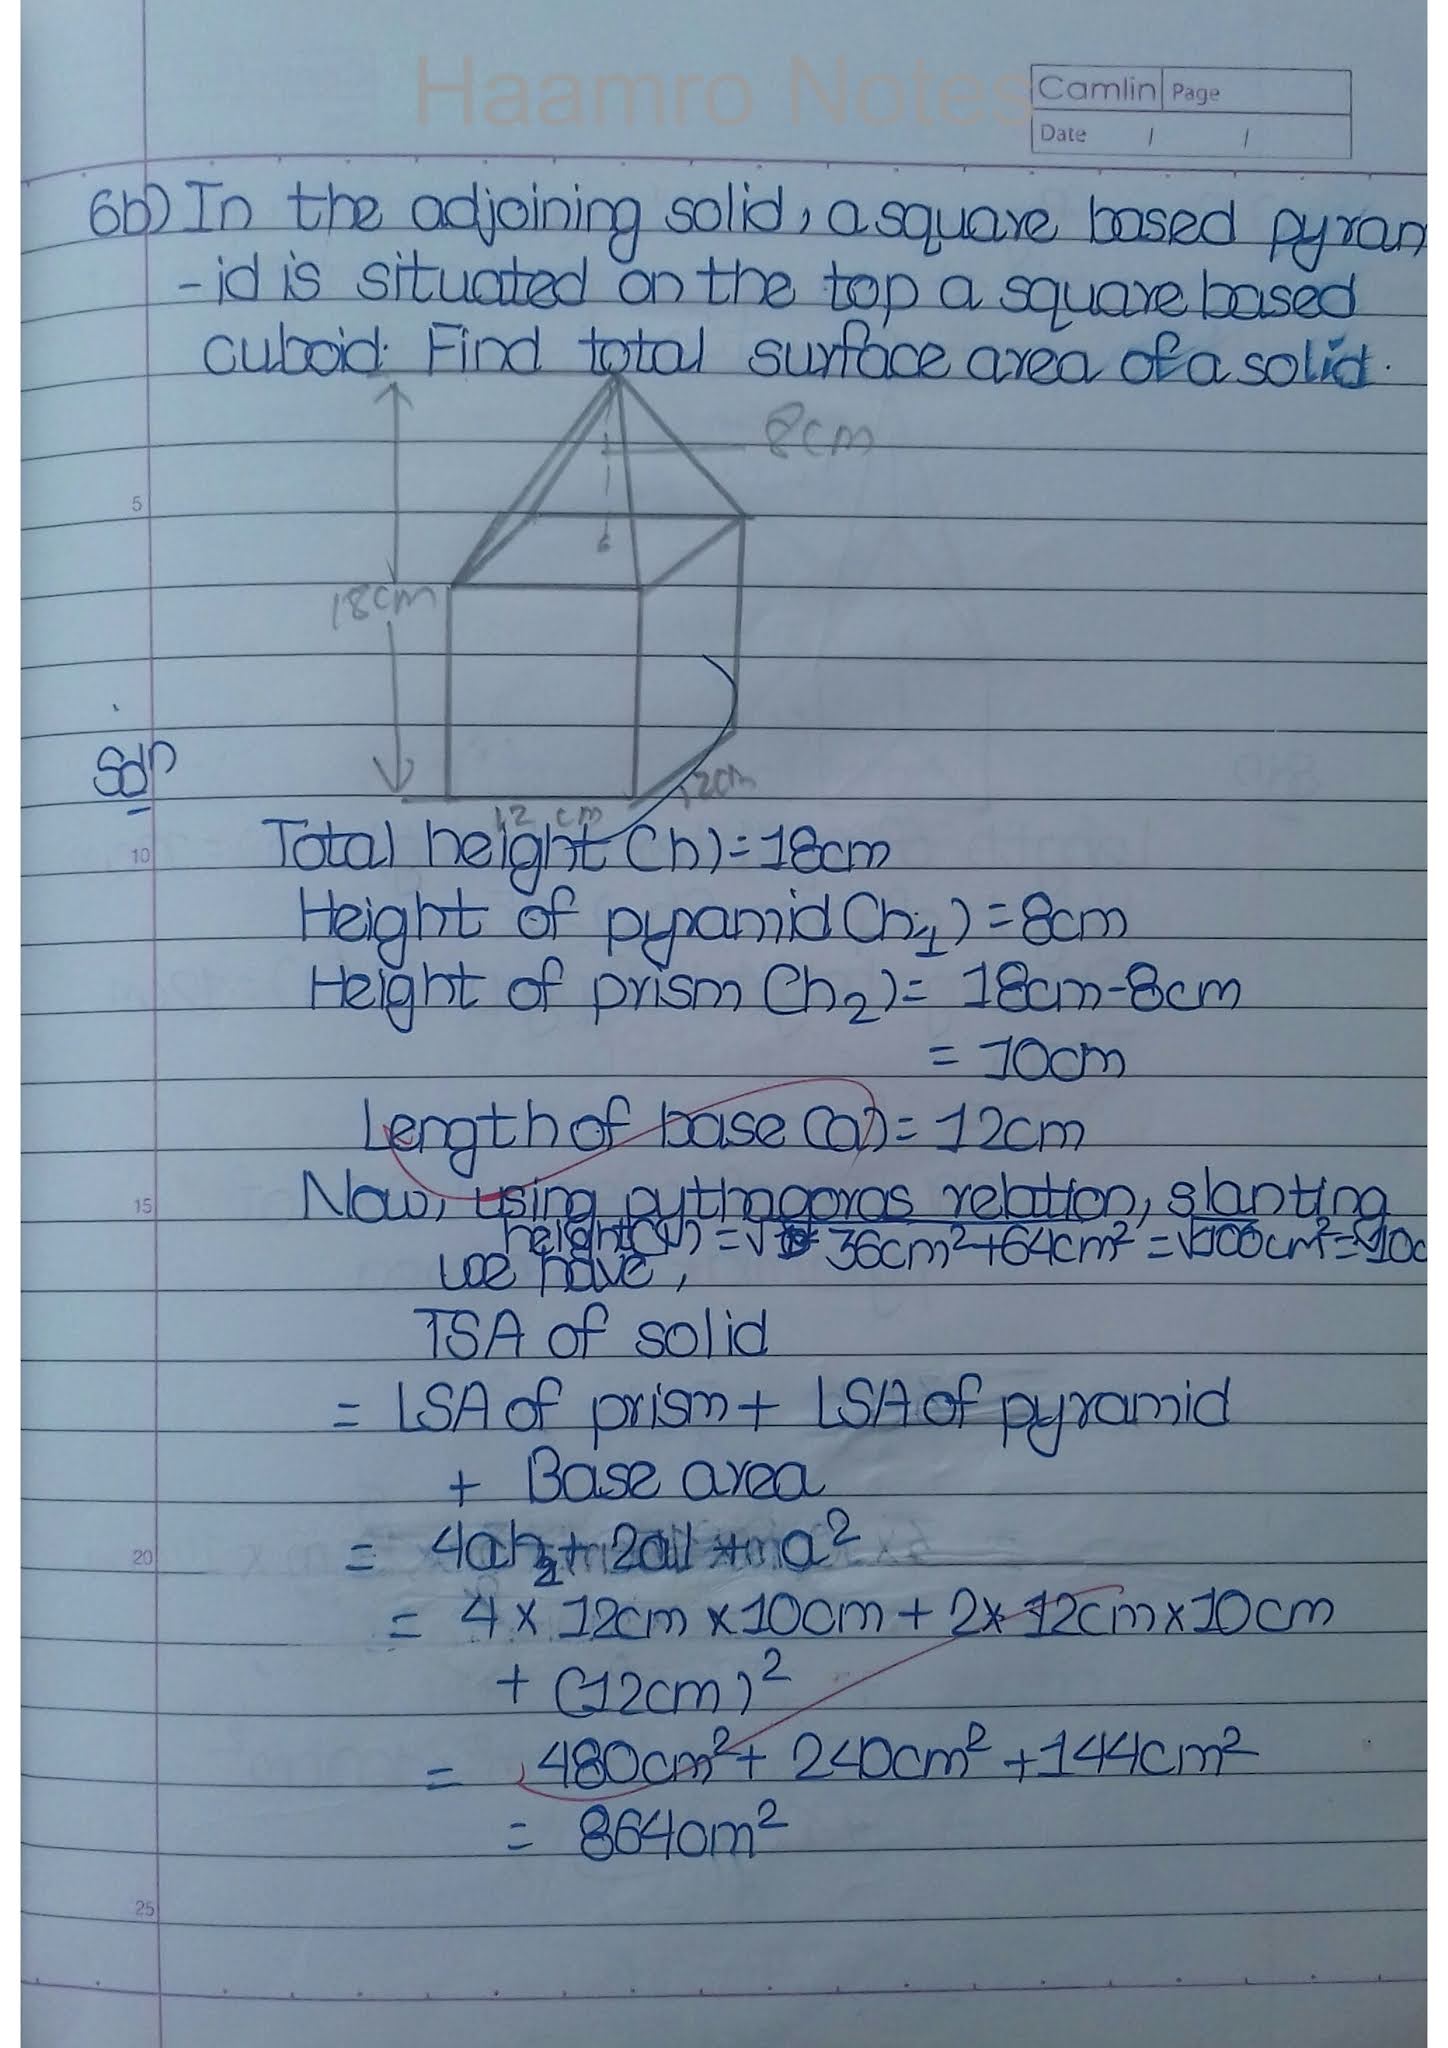 Haamro Notes
Camlin Page
Date / /
6b) In the adjoining solid, a square based pyram
-id is situated on the top a square based
cuboid. Find total surface area of a solid.
8cm
5
6
18cm
Solⁿ
12 cm
12cm
Total height (h) = 18cm
10
Height of pyramid (h₁) = 8cm
Height of prism (h₂) = 18cm-8cm
= 10cm
Length of base (a) = 12cm
15
Now, using pythagoras relation, slanting
height(l) = √36cm²+64cm² = √100cm² = 10c
we have,
TSA of solid
= LSA of prism + LSA of pyramid
+ Base area
20
= 4ah₂ + 2al + a²
= 4 × 12cm × 10cm + 2 × 12cm × 10cm
+ (12cm)²
= 480cm² + 240cm² + 144cm²
= 864cm²
25